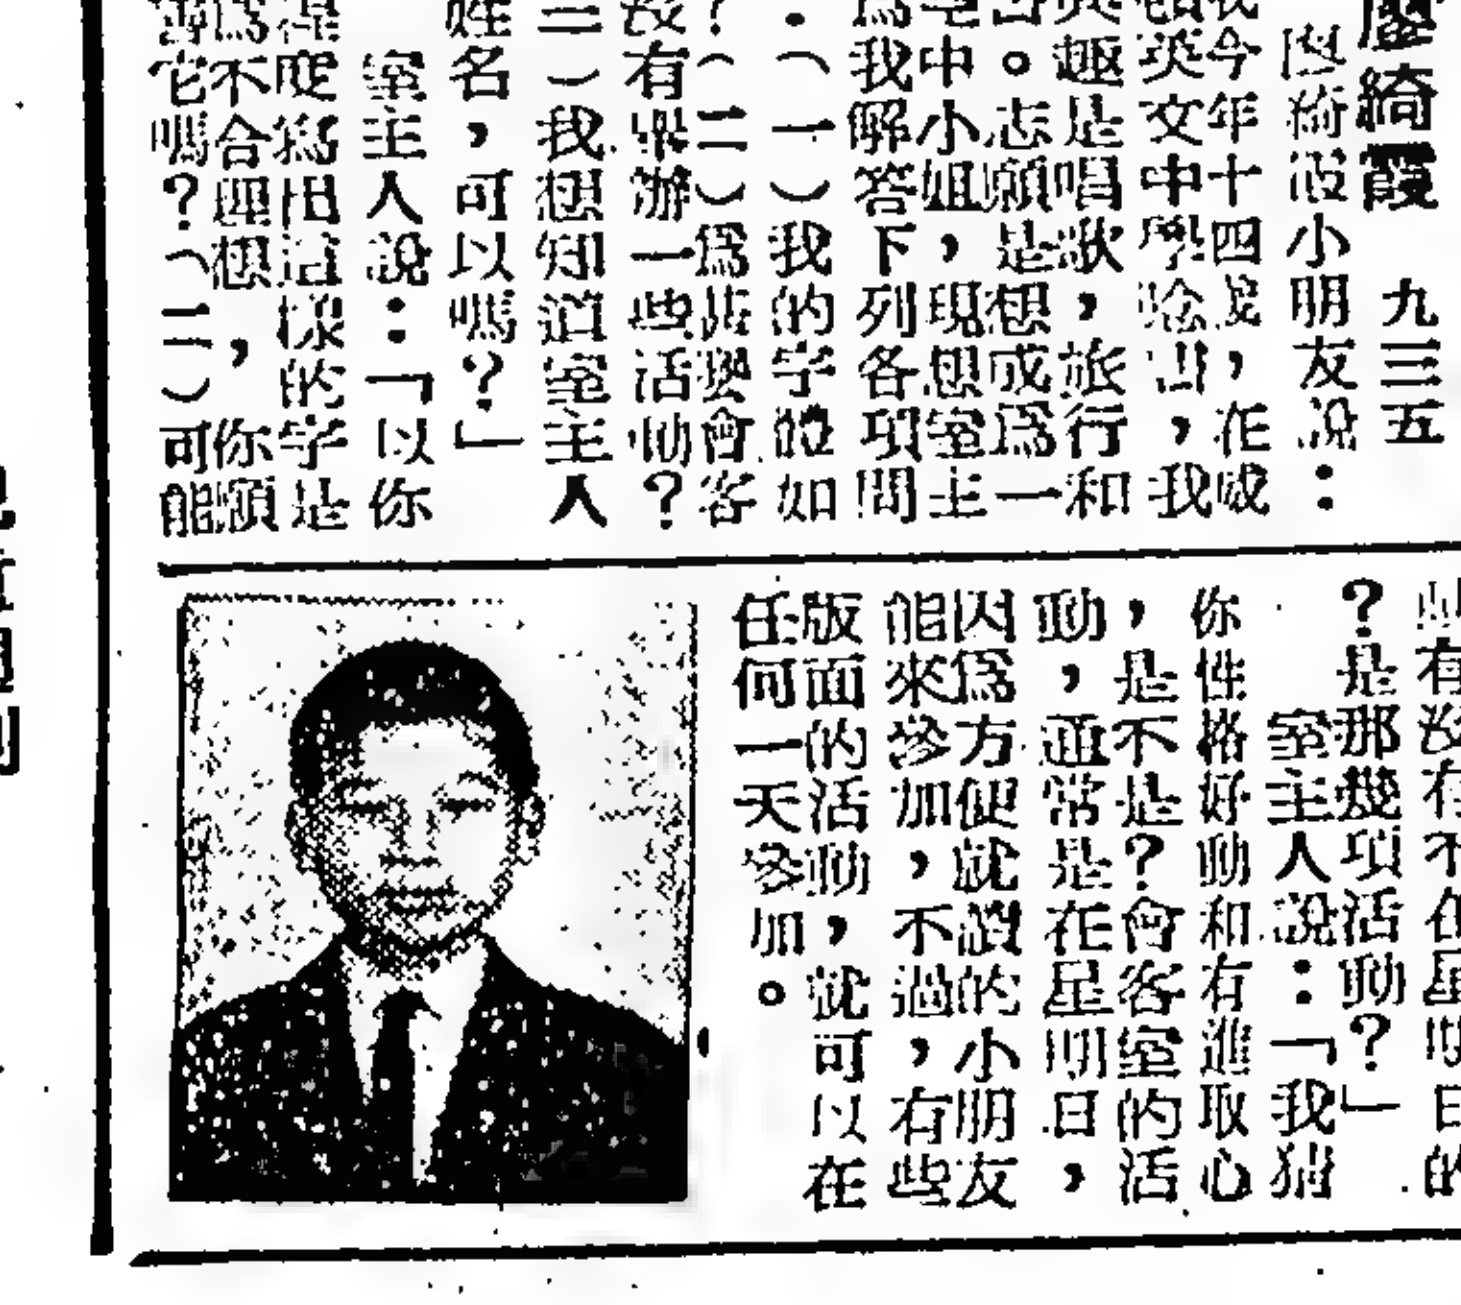 綺霞　九三五
綺霞小朋友說：
我今年十四歲，在
英文中學唸書，我
興趣是唱歌，旅行和
。志願是想成爲一
中小姐，現想室主
爲我解答下列各項問
：（一）我的字體如
？（二）爲甚麼會客
沒有舉辦一些活動？
三）我想知道室主人
姓名，可以嗎？」
室主人說：「以你
程度寫出這樣的字是
爲不合理想，你願
它嗎？（二）可能
有沒有不在星期日的
？是那幾項活動？」
室主人說：「我猜
你性格好動和有進取心
，是不是？會客室的活
動，通常是在星期日，
因爲方便就讀的小朋友
能來參加，不過，有些
版面的活動，就可以在
任何一天參加。